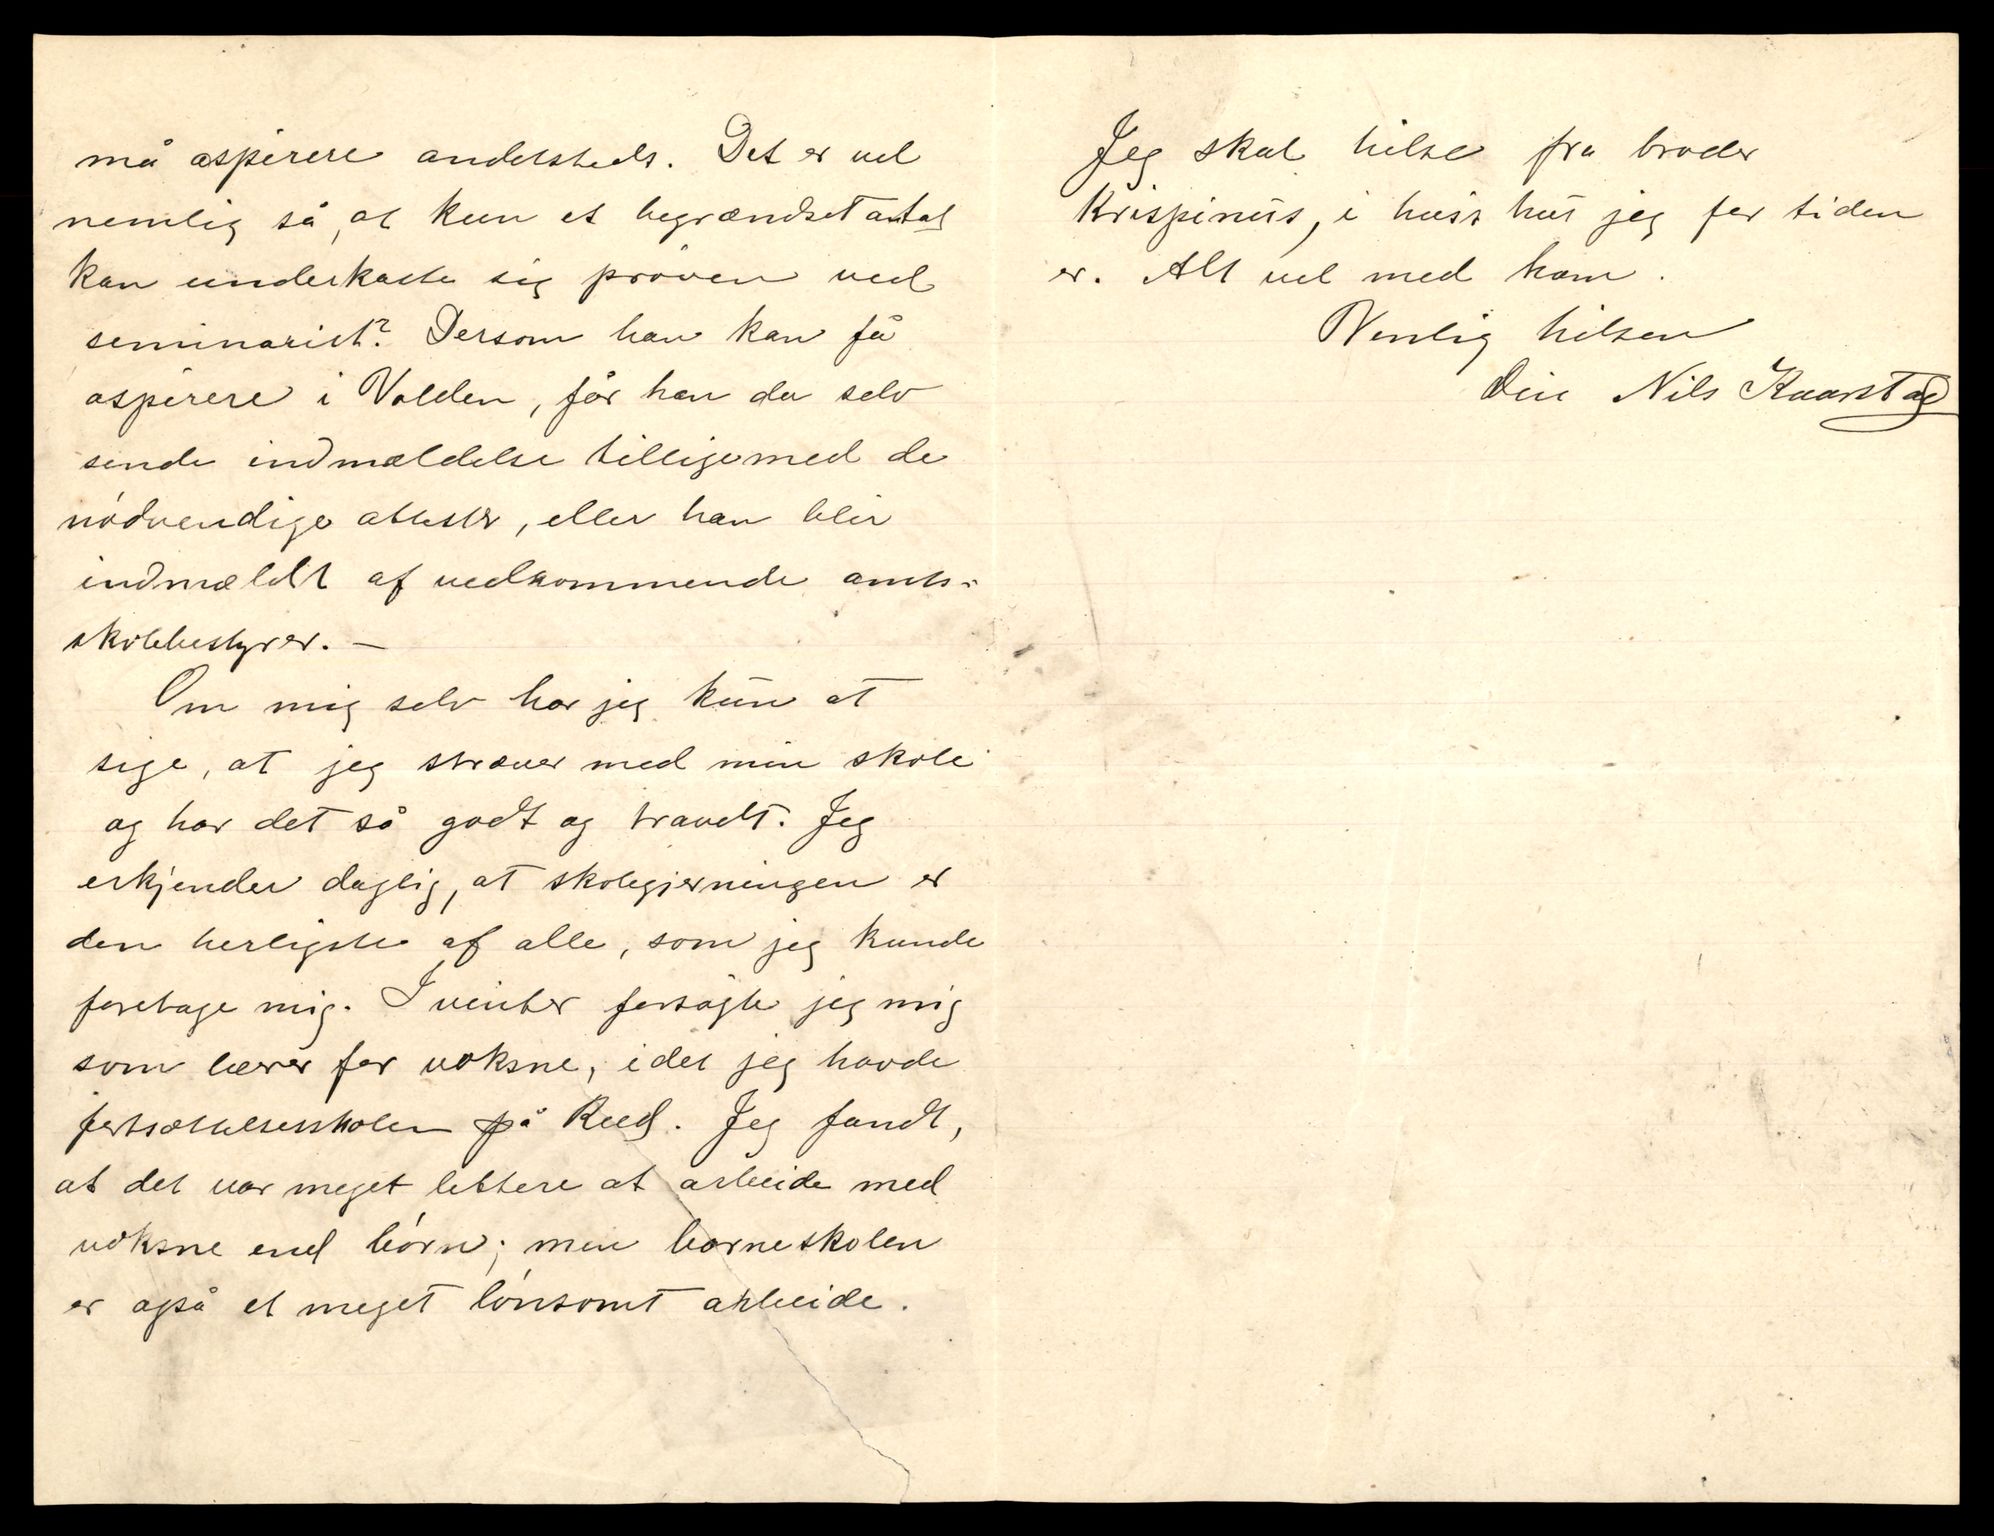 må aspirere andetsteds. Det er vel
nemlig så, at kun et begrændset antal
kan underkaste sig prøven ved
seminariet? Dersom han kan få
aspirere i Volden, får han da selv
sende indmældelse tilligemed de
nødvendige attester, eller han blir
indmældt af vedkommende amts-
skolebestyrer. —
Om mig selv har jeg kun at
sige, at jeg stræver med min skole
og har det så godt og travelt. Jeg
erkjender daglig, at skolegjerningen er
den herligste af alle, som jeg kunde
foretage mig. I vinter forsøgte jeg mig
som lærer for voksne, idet jeg havde
fortsættelsesskolen på Rud. Jeg fandt,
at det var meget lettere at arbeide med
voksne end børn; men barneskolen
er også et meget lønsomt arbeide.
Jeg skal hilse fra broder
Krispinus, i hvis hus jeg for tiden
er. Alt vel med ham.
Venlig hilsen
Din Nils Kaarstad